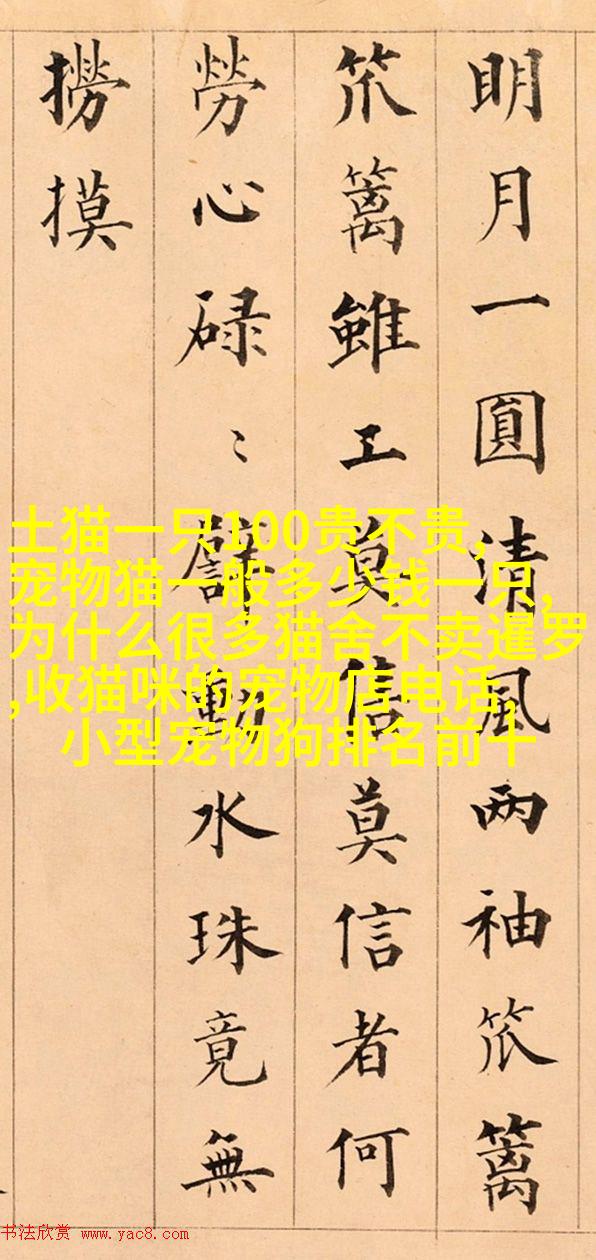 明月一圓清風两袖笊篱
笊篱雖工莫信莫信者何
勞心碌〻動水珠竟無
撈摸
土猫一只100贵不贵,
宠物猫一般多少钱一只,
为什么很多猫舍不卖暹罗
,收猫咪的宠物店电话,
小型宠物狗排名前十
书法欣赏 www.yac8.com